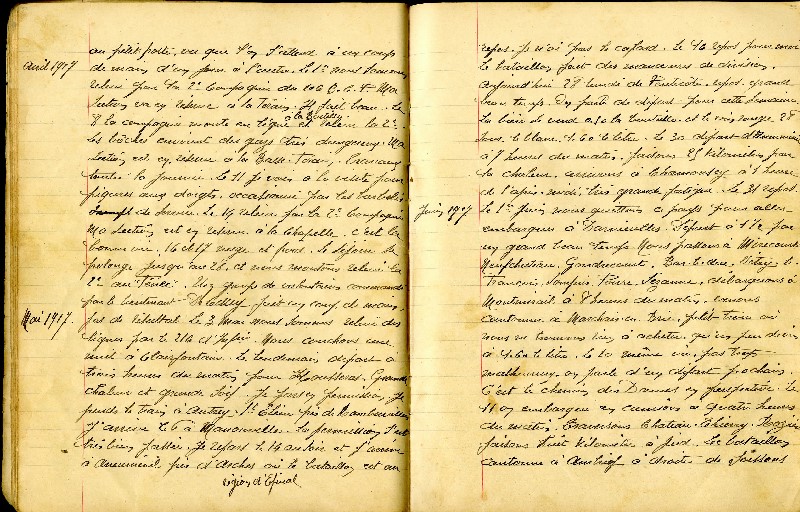 au petit poste, vu que l'on s'attend à un coup
avril 1917
de main d'un jour à l'autre. Le 1er nous sommes
relevé par la 2e Compagnie du
section va en réserve à la Fait beau. Le
8 la compagnie monte en ligne et relève la 2e.
à la
Les boches envoient des gaz très dangereux. Ma
section est en réserve à la travaux
toute la journée. Le 11 je vais à la visite pour
piqures aux doigts, occasionné par les barbelés
de Le 14 relève par la 2e Compagnie
Ma section est en réserve à la Chapelle c'est la
bonne vie. 16 et 17 neige et froid. Le séjour se
prolonge jusqu'au 26, et nous montons relever la
2e au Un groupe de volontaires commandé
par le lieutenant fait un coup de main,
pas de résultat. Le 3 Mai nous sommes relevé des
Mai 1917.
lignes par le Nous couchons une
nuit à Clairfontaine. Le lendemain départ à
trois heures du matin pour Housseras, Grande
chaleur et grande soif. Je passe permission, je
prends le train à St Elem près de Rambervillers
J'arrive le 6 à La permission s'est
très bien passée. Je repars le 14 au soir et j'arrive
à près d'Arches où le bataillon est au
région d'Epinal
repos. Je n'ai pas le cafard. Le 16 repos pour nous
le bataillon fait des manœuvres de division.
Aujourd'hui 28 lundi de Pentecôte, repos, grand
beau temps. On parle de départ pour cette semaine.
La bière se vend 0.50 la bouteille et le vin rouge 28
sous, le blanc 1.60 le litre. Le 30 départ
à 7 heures du matin, faisons 25 kilomètres par
la chaleur, arrivons à Chamousey à 1 heure
de l'après-midi très grande fatigue. Le 31 repos.
Juin 1917
Le 1er Juin nous quittons ce pays pour aller
embarquer à Darnieulles. Départ à par
un grand beau temps. Nous passons à Mirecourt
Neufchateau, Gondrecourt, Bar-le-duc, Vitry-le-
François, Sompuis, Fère, Sézanne, débarquons à
Montmirail à 8 heures du matin, venons
cantonner à Marchais-en-Brie, petit trou où
nous ne trouvons rien à acheter, qu'un peu de vin
à 1.60 le litre. Le 10 même vie, pas trop
malheureux, on parle d'un départ prochain.
C'est le chemin des Dames en perspective. Le
11 on embarque en camions à quatre heures
du matin. Traversons Chateau-Thierry.
faisons huit kilomètres à pied. Le bataillon
cantonne à Ambrief à droite de Soissons